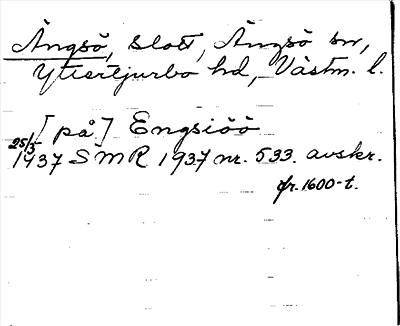 Ängsö, slott, Ängsö sn,
Yttertjurbo hd, Västm. l.
[på] Engsiöö
25/5
1937 SMR 1937 nr. 533. avskr.
fr. 1600-t.